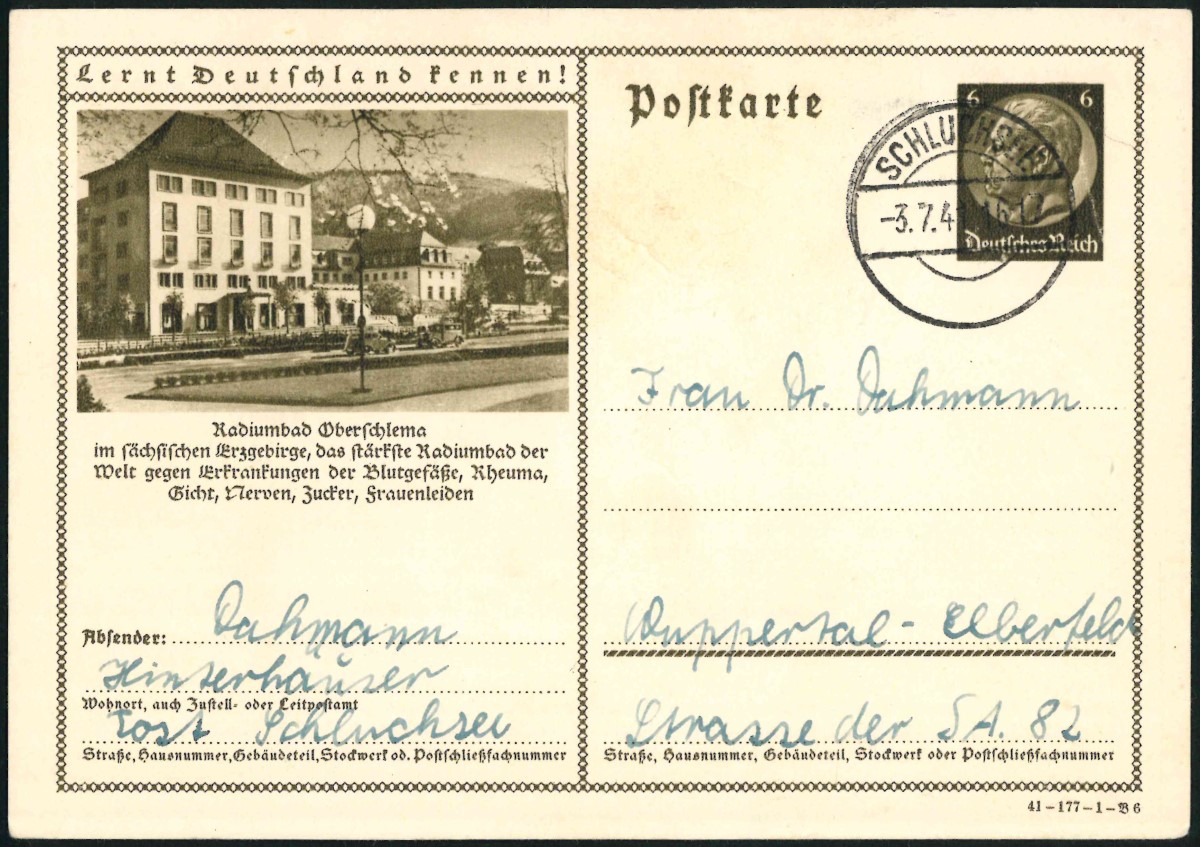 Lernt Deutschland kennen!
Radiumbad Oberschlema
im sächsischen Erzgebirge, das stärkste Radiumbad der
Welt gegen Erkrankungen der Blutgefäße, Rheuma,
Gicht, Nerven, Zucker, Frauenleiden
Absender: Dahmann
Hinterhäuser
Wohnort, auch Zustell- oder Leitpostamt
Post Schluchsee
Straße, Hausnummer, Gebäudeteil, Stockwerk od. Postschließfachnummer
Postkarte
6 6
Deutsches Reich
-3.7.4
Frau Dr. Dahmann
Wuppertal - Elberfeld
Strasse der SA. 82
Straße, Hausnummer, Gebäudeteil, Stockwerk oder Postschließfachnummer
41-177-1-B6